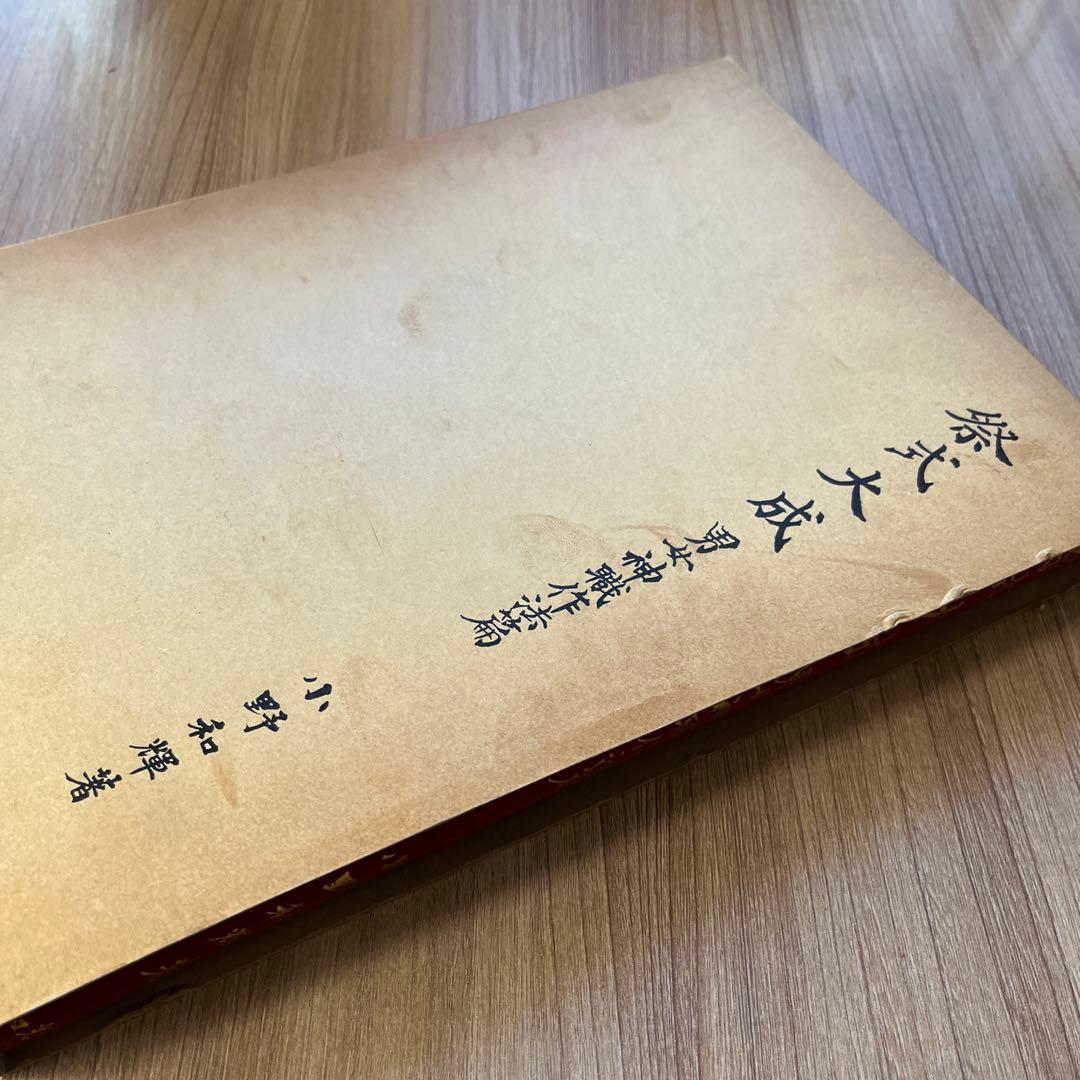 祭式大成
男女神職作法篇
小野和輝著